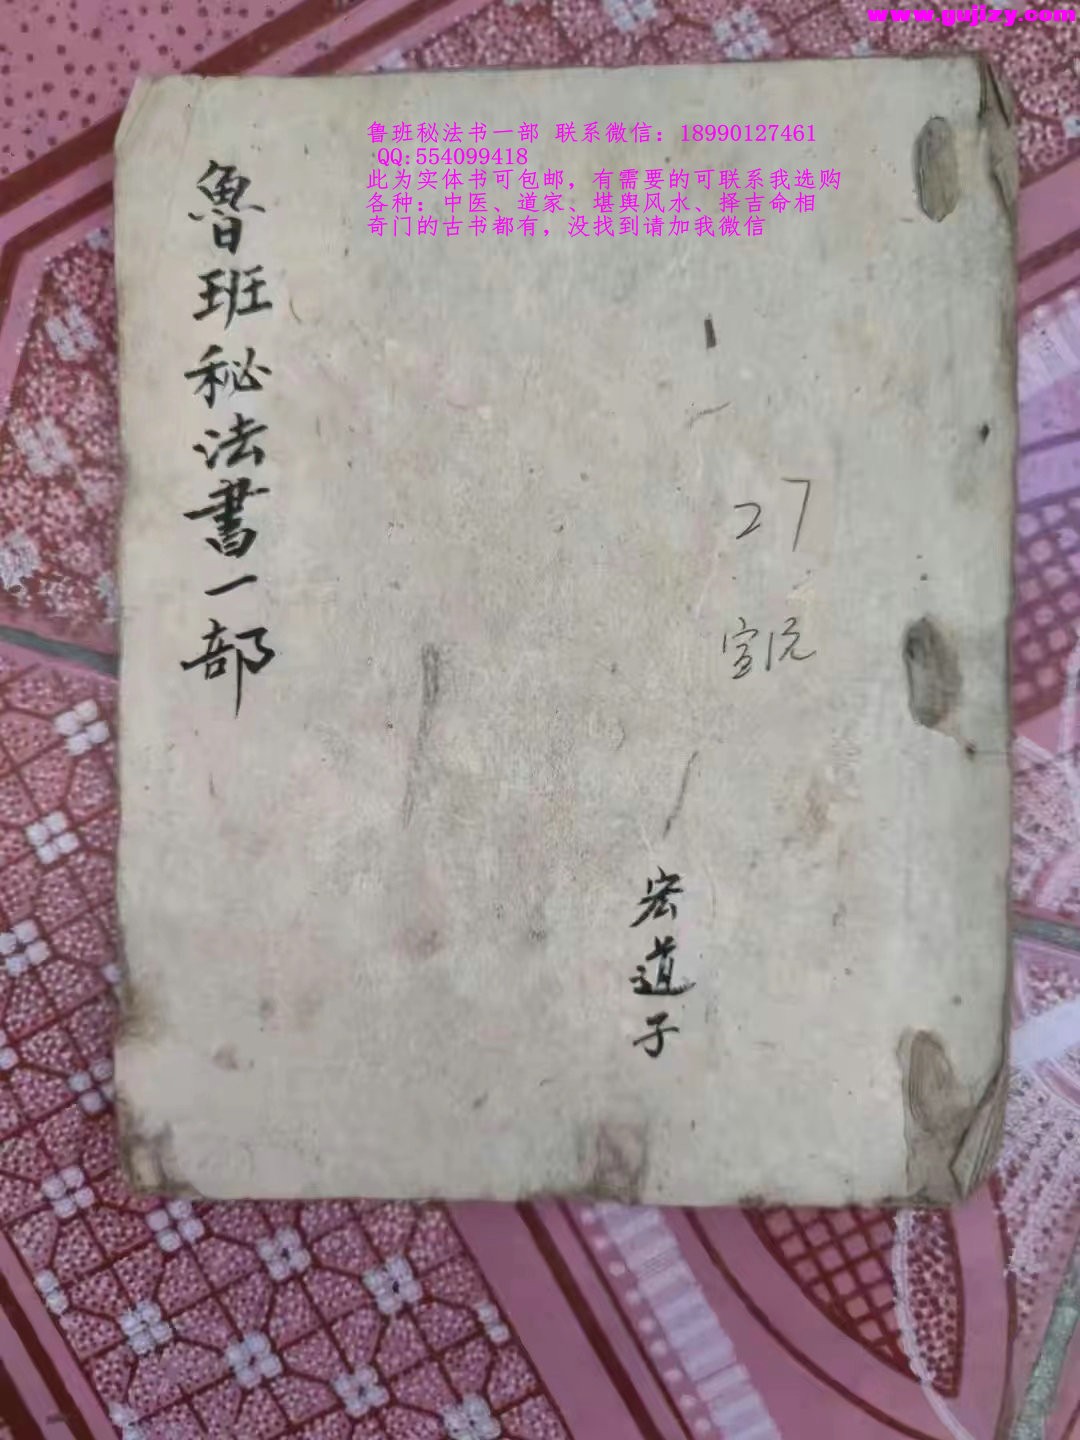 www.gujizy.com
鲁班秘法书一部 联系微信：18990127461
QQ:554099418
此为实体书可包邮，有需要的可联系我选购
各种：中医、道家、堪舆风水、择吉命相
奇门的古书都有，没找到请加我微信
魯班秘法書一部
27
宏道子